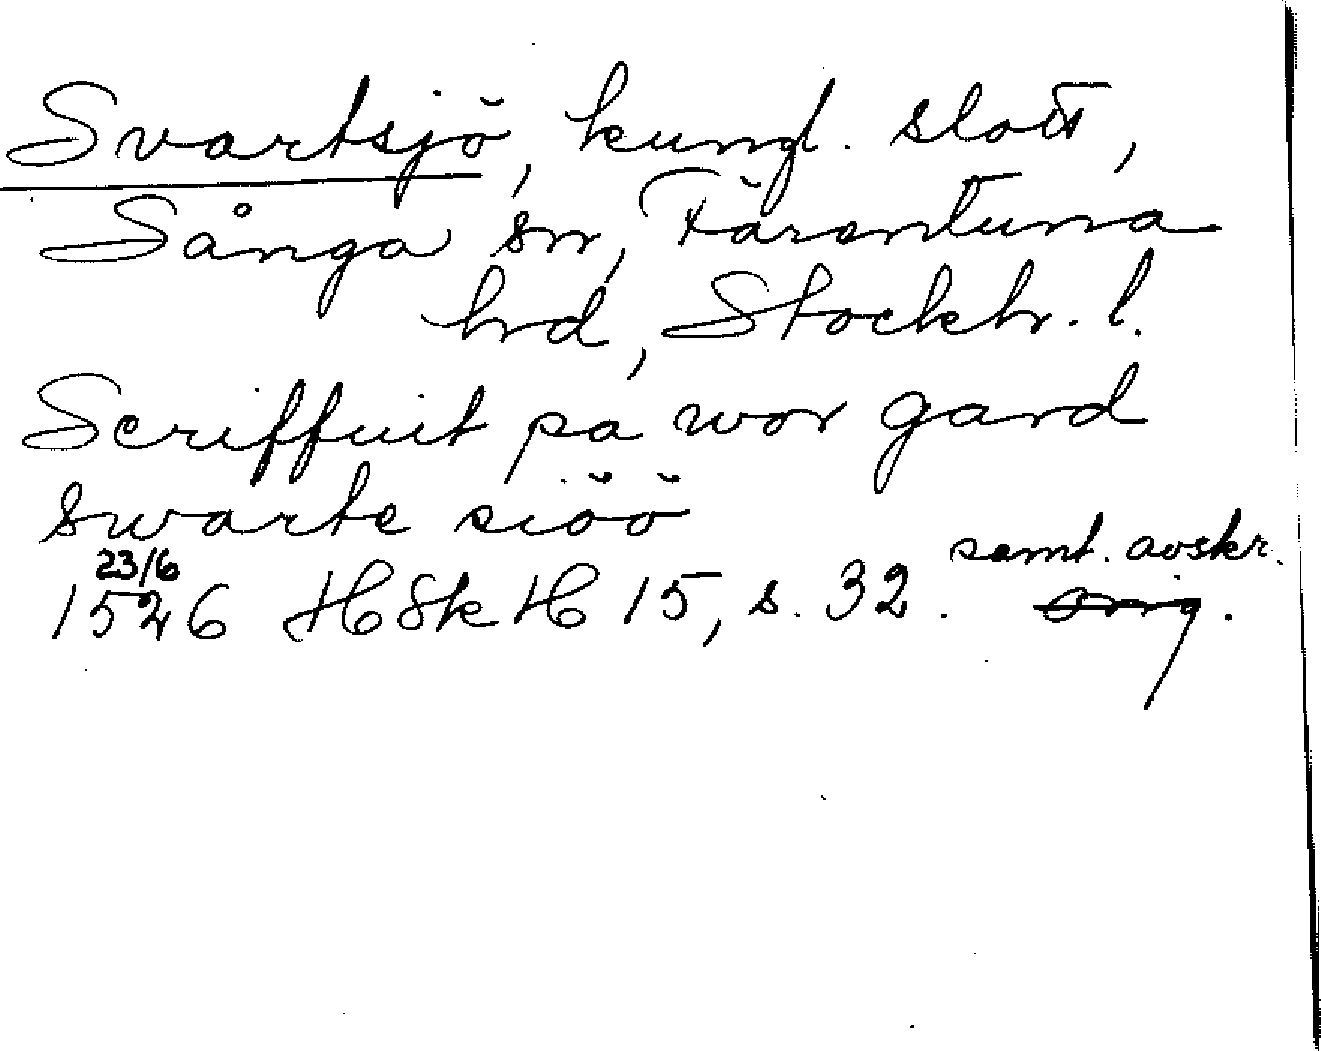 Svartsjö, kungl. slott,
Sånga sn, Färentuna
hrd, Stockh. l.
Scriffuit pa wor gard
swarte siöö
23/6
1526 HSkH 15, s. 32. samt. avskr.
orig.